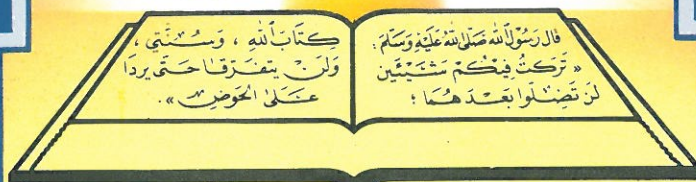 قَالَ رَسُولُ اللهِ صَلَّى اللهُ عَلَيْهِ وَسَلَّمَ :
« تَرَكْتُ فِيكُمْ شَيْئَيْنِ
لَنْ تَضِلُّوا بَعْدَهُمَا ؛
كِتَابَ اللهِ ، وَسُنَّتِي ،
وَلَنْ يَتَفَرَّقَا حَتَّى يَرِدَا
عَلَىَّ الْحَوْضَ ».